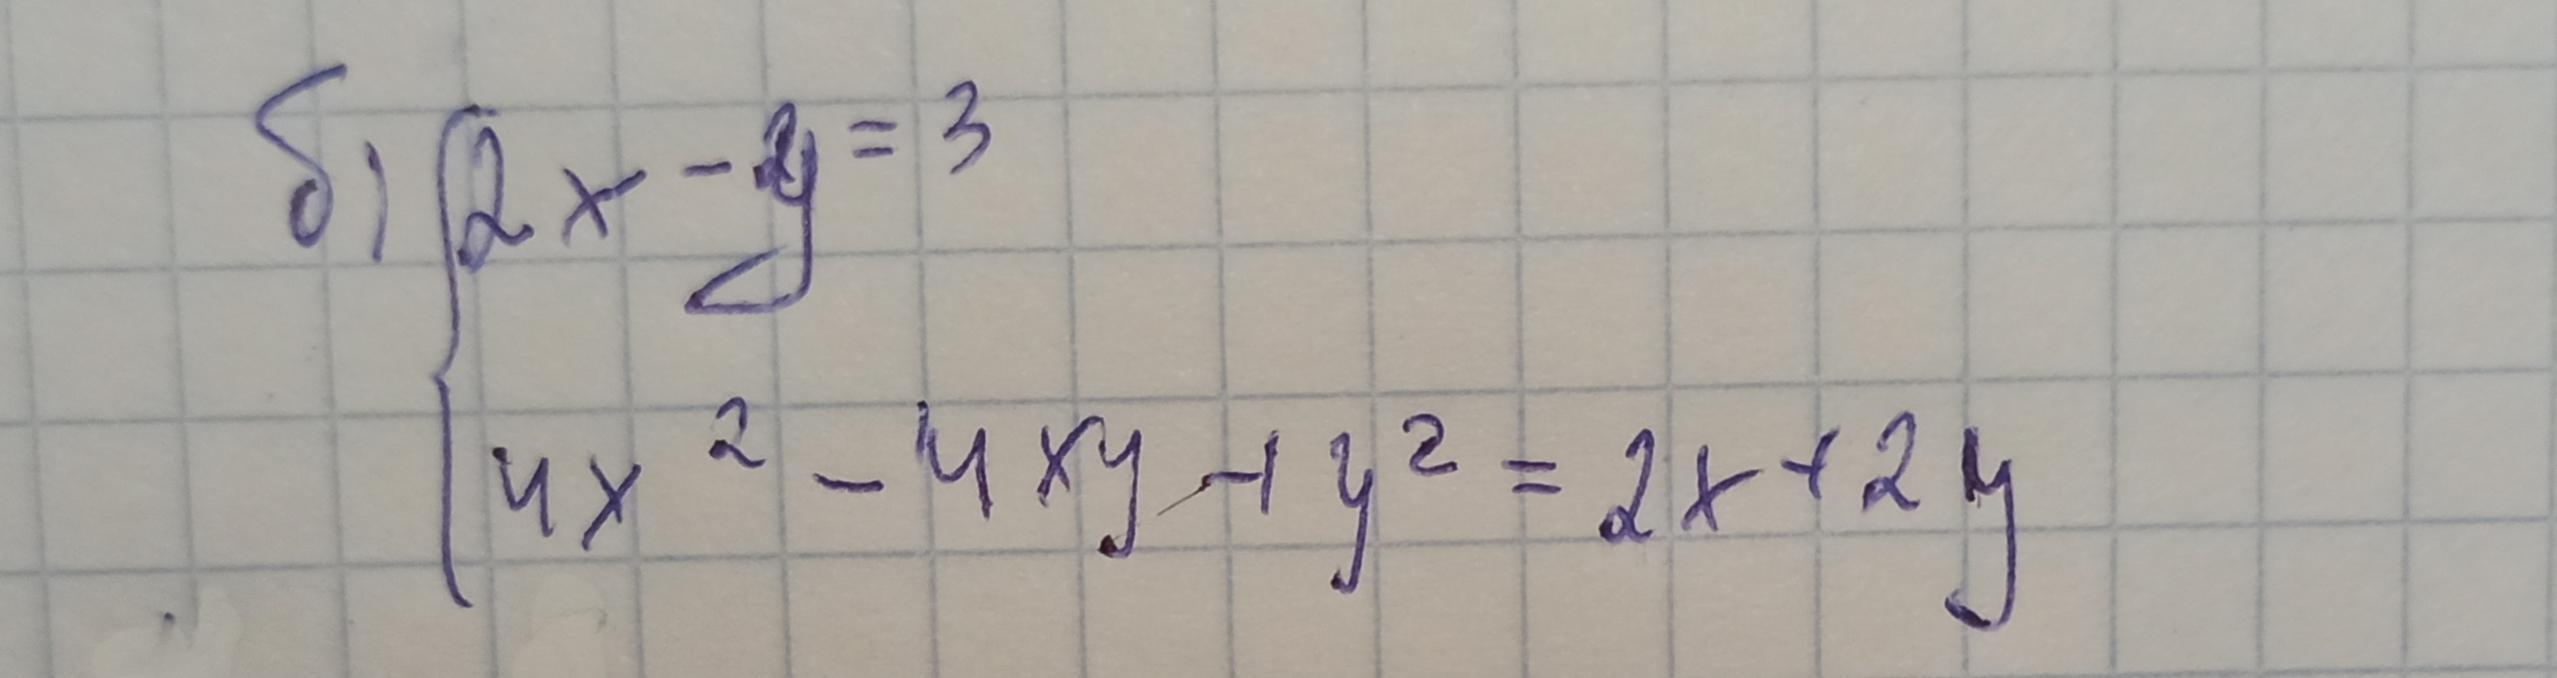 б) { 2x - y = 3
4x² - 4xy + y² = 2x + 2y